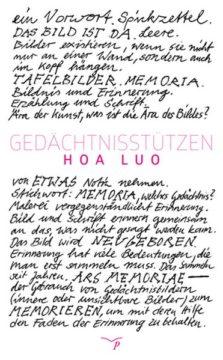 ein Vorwort. Spickzettel.
DAS BILD IST DA. Leere.
Bilder existieren, wenn sie nicht
nur an einer Wand, sondern auch
im Kopf hängen.
TAFELBILDER. MEMORIA.
Bildnis und Erinnerung.
Erzählung und Schrift.
Ära der Kunst, was ist die Ära des Bildes?
GEDÄCHTNISSTÜTZEN
HOA LUO
von ETWAS Notiz nehmen.
Stichwort: MEMORIA, welches Gedächtnis?
Malerei vergegenständlicht Erinnerung.
Bild und Schrift erinnern gemeinsam
an das, was nicht gesagt werden kann.
Das Bild wird NEUGEBOREN.
Erinnerung hat viele Bedeutungen, die
man erst sammeln muss. Das Sammeln
seit Jahren, ARS MEMORIAE –
der Gebrauch von Gedächtnisbildern
(innere oder unsichtbare Bilder) zum
MEMORIEREN, um mit deren Hilfe
den Faden der Erinnerung zu behalten.
P